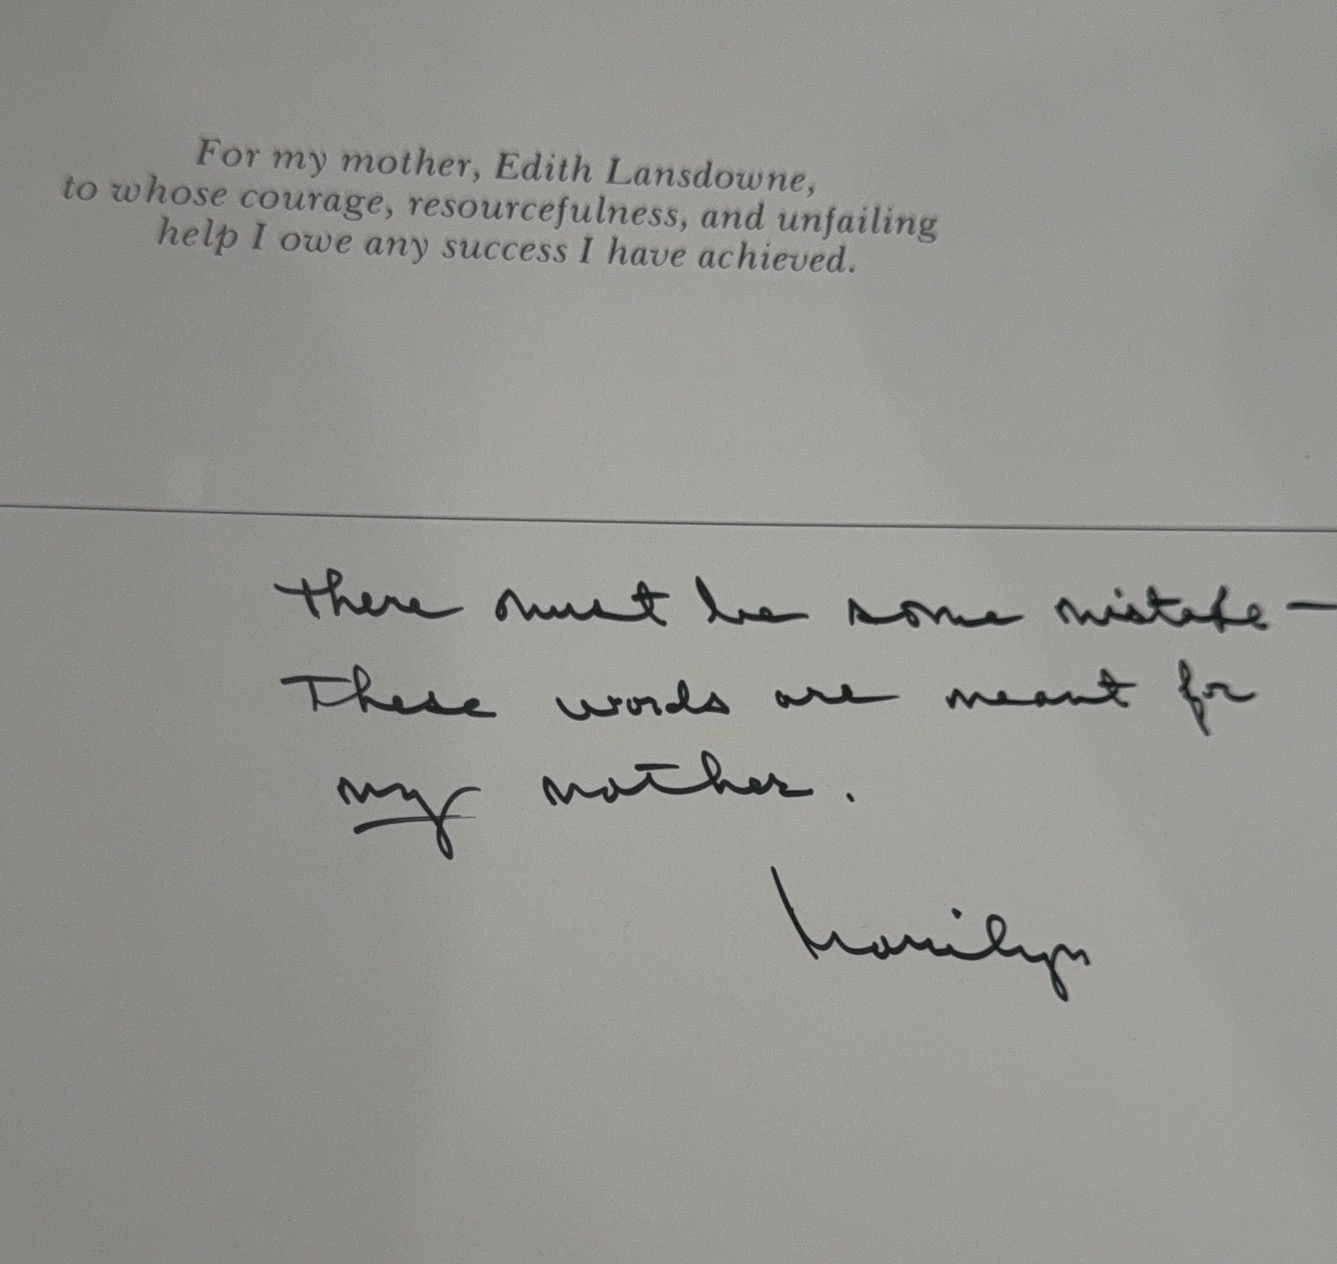 For my mother, Edith Lansdowne,
to whose courage, resourcefulness, and unfailing
help I owe any success I have achieved.
There must be some mistake —
These words are meant for
my mother.
Marilyn